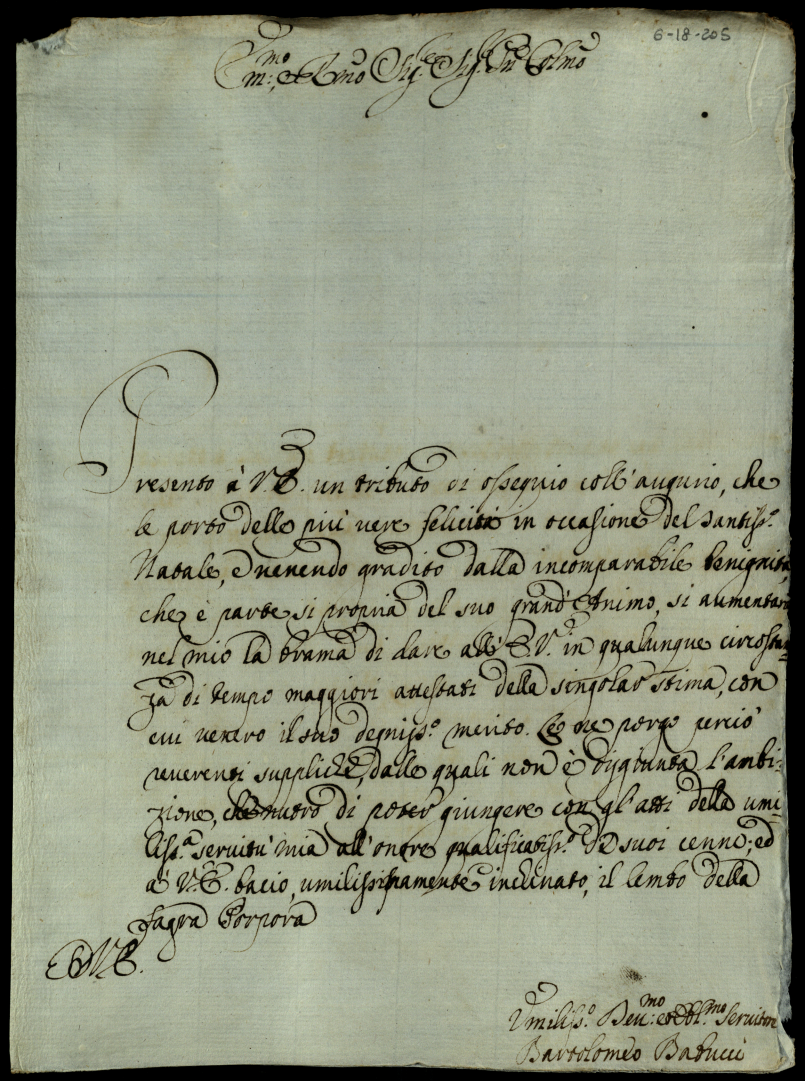 6-18-205
Em.mo et Rmo Sig.e Sig.e Pne Colmo
Presento à V.E. un tributo di ossequio coll'augurio, che
le porto delle più vere felicità in occasione del Santiss.o
Natale, e venendo gradito dalla incomparabile benignità,
che è parte si propria del suo grand'Animo, si aumentarà
nel mio la brama di dare all'E.V. in qualunque circostan-
za di tempo maggiori attestati della singolar stima, con
cui venero il suo degniss.o merito. Gle ne porgo perciò
reverenti suppliche, dalle quali non è disgiunta l'ambi-
zione, che nutro di poter giungere con gl'atti della umi-
liss.a servitù mia all'onore qualificatiss.o de suoi cenni; ed
a V.E. bacio, umilissimamente inclinato, il lembo della
sagra Porpora
D V.E.
Umiliss.o Dev.mo et Obl.mo Servitore
Bartolomeo Babucci